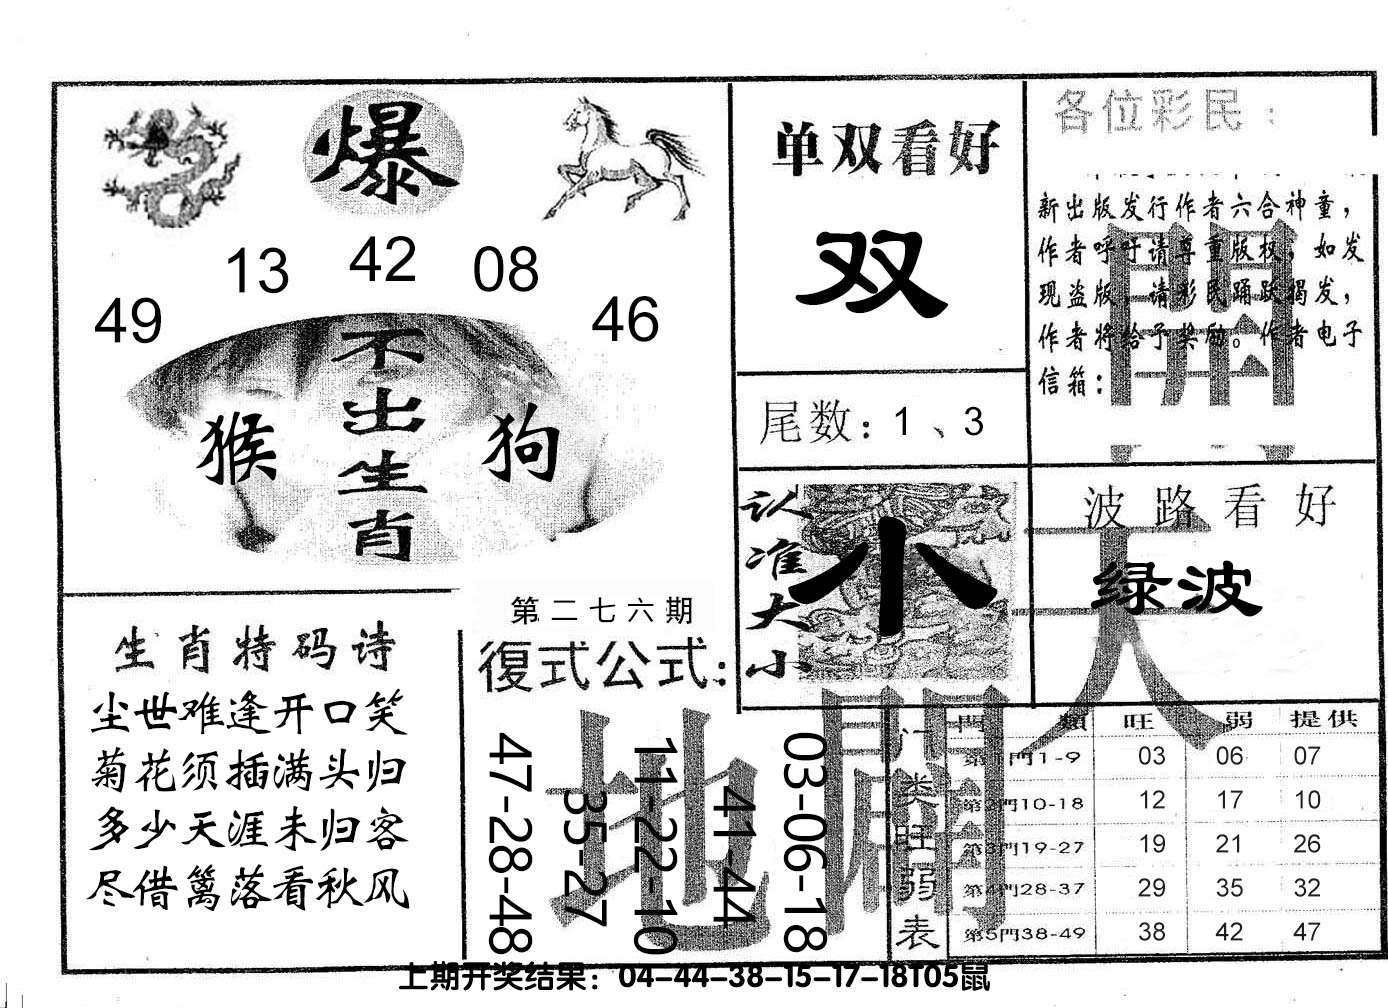 爆
13 42 08
49 46
不出生肖
猴
狗
单双看好
双
尾数：1、3
各位彩民：
新出版发行作者六合神童，
作者呼吁请尊重版权，如发
现盗版，请彩民踊跃揭发，
作者将给予奖励。作者电子
信箱：
開
认准大小
小
波路看好
绿波
天
生肖特码诗
尘世难逢开口笑
菊花须插满头归
多少天涯未归客
尽借篱落看秋风
第二七六期
復式公式：
47-28-48
35-27
11-22-10
41-44
03-06-18
地
門類 旺 弱 提供
门类旺弱表
第1門1-9 03 06 07
第2門10-18 12 17 10
第3門19-27 19 21 26
第4門28-37 29 35 32
第5門38-49 38 42 47
上期开奖结果：04-44-38-15-17-18T05鼠